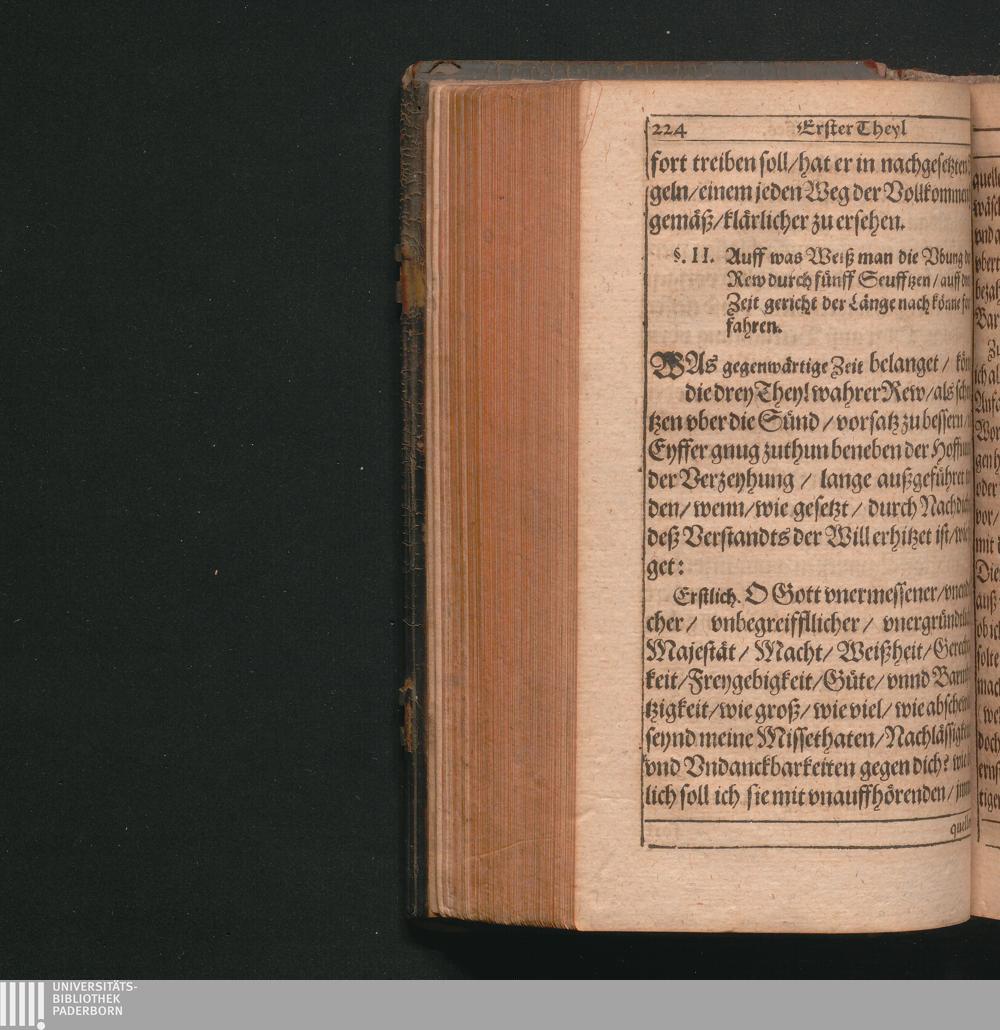 224 Erster Theyl
fort treiben soll/hat er in nachgesetzten
geln/einem jeden Weg der Vollkommen
gemäß/klärlicher zu ersehen.
§. II. Auff was Weiß man die Vbung
Rew durch fünff Seufftzen/auff
Zeit gericht der Länge nach könne
fahren.
WAs gegenwärtige Zeit belanget/
die drey Theyl wahrer Rew/als
tzen vber die Sünd/vorsatz zu bessern/
Eyffer gnug zuthun beneben der
der Verzeyhung/ lange außgeführet
den/wenn/wie gesetzt/ durch
deß Verstandts der Will erhitzet ist/
get:
Erstlich. O Gott vnermessener/
cher/ vnbegreiffllicher/
Majestät/ Macht/ Weißheit/
keit/Freygebigkeit/Güte/ vnnd
tzigkeit/wie groß/wie viel/wie
seynd meine Missethaten/
vnd Vndanckbarkeiten gegen dich?
lich soll ich sie mit vnauffhörenden/
UNIVERSITÄTS-
BIBLIOTHEK
PADERBORN